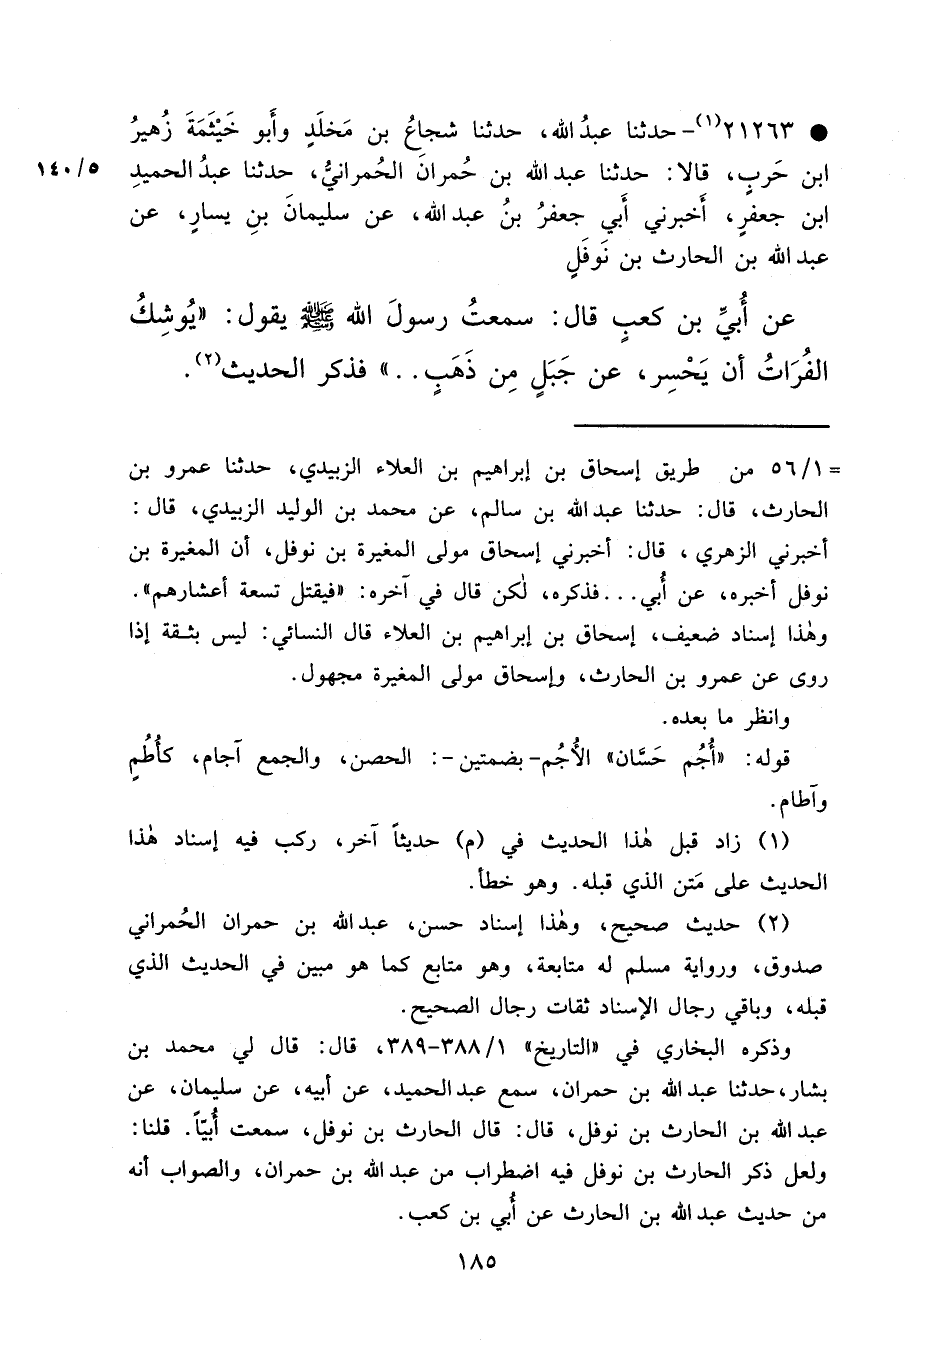 ● ٢١٢٦٣(١)- حدثنا عبدُ الله، حدثنا شجاعُ بن مَخلَدٍ وأَبو خَيْثَمَةَ زُهيرُ
ابن حَربٍ، قالا: حدثنا عبد الله بن حُمرانَ الحُمرانيُّ، حدثنا عبدُ الحميدِ ١٤٠/٥
ابن جعفرٍ، أَخبرني أَبي جعفرُ بنُ عبد الله، عن سليمانَ بنِ يسارٍ، عن
عبد الله بن الحارث بن نَوفَلٍ
عن أُبيِّ بن كعبٍ قال: سمعتُ رسولَ الله ﷺ يقول: «يُوشِكُ
الفُرَاتُ أن يَحْسِر، عن جَبَلٍ مِن ذَهَبٍ..» فذكر الحديث(٢).
= ٥٦/١ من طريق إسحاق بن إبراهيم بن العلاء الزبيدي، حدثنا عمرو بن
الحارث، قال: حدثنا عبد الله بن سالم، عن محمد بن الوليد الزبيدي، قال:
أخبرني الزهري، قال: أخبرني إسحاق مولى المغيرة بن نوفل، أن المغيرة بن
نوفل أخبره، عن أُبي...فذكره، لٰكن قال في آخره: «فيقتل تسعة أعشارهم».
وهٰذا إسناد ضعيف، إسحاق بن إبراهيم بن العلاء قال النسائي: ليس بثقة إذا
روى عن عمرو بن الحارث، وإسحاق مولى المغيرة مجهول.
وانظر ما بعده.
قوله: «أُجُم حَسَّان» الأُجُم- بضمتين -: الحصن، والجمع آجام، كأُطُمٍ
وآطام.
(١) زاد قبل هٰذا الحديث في (م) حديثاً آخر، ركب فيه إسناد هٰذا
الحديث على مَتن الذي قبله. وهو خطأ.
(٢) حديث صحيح، وهٰذا إسناد حسن، عبد الله بن حمران الحُمراني
صدوق، ورواية مسلم له متابعة، وهو متابع كما هو مبين في الحديث الذي
قبله، وباقي رجال الإسناد ثقات رجال الصحيح.
وذكره البخاري في «التاريخ» ٣٨٨/١-٣٨٩، قال: قال لي محمد بن
بشار، حدثنا عبد الله بن حمران، سمع عبد الحميد، عن أبيه، عن سليمان، عن
عبد الله بن الحارث بن نوفل، قال: قال الحارث بن نوفل، سمعت أُبيّاً. قلنا:
ولعل ذكر الحارث بن نوفل فيه اضطراب من عبد الله بن حمران، والصواب أنه
من حديث عبد الله بن الحارث عن أُبي بن كعب.
١٨٥